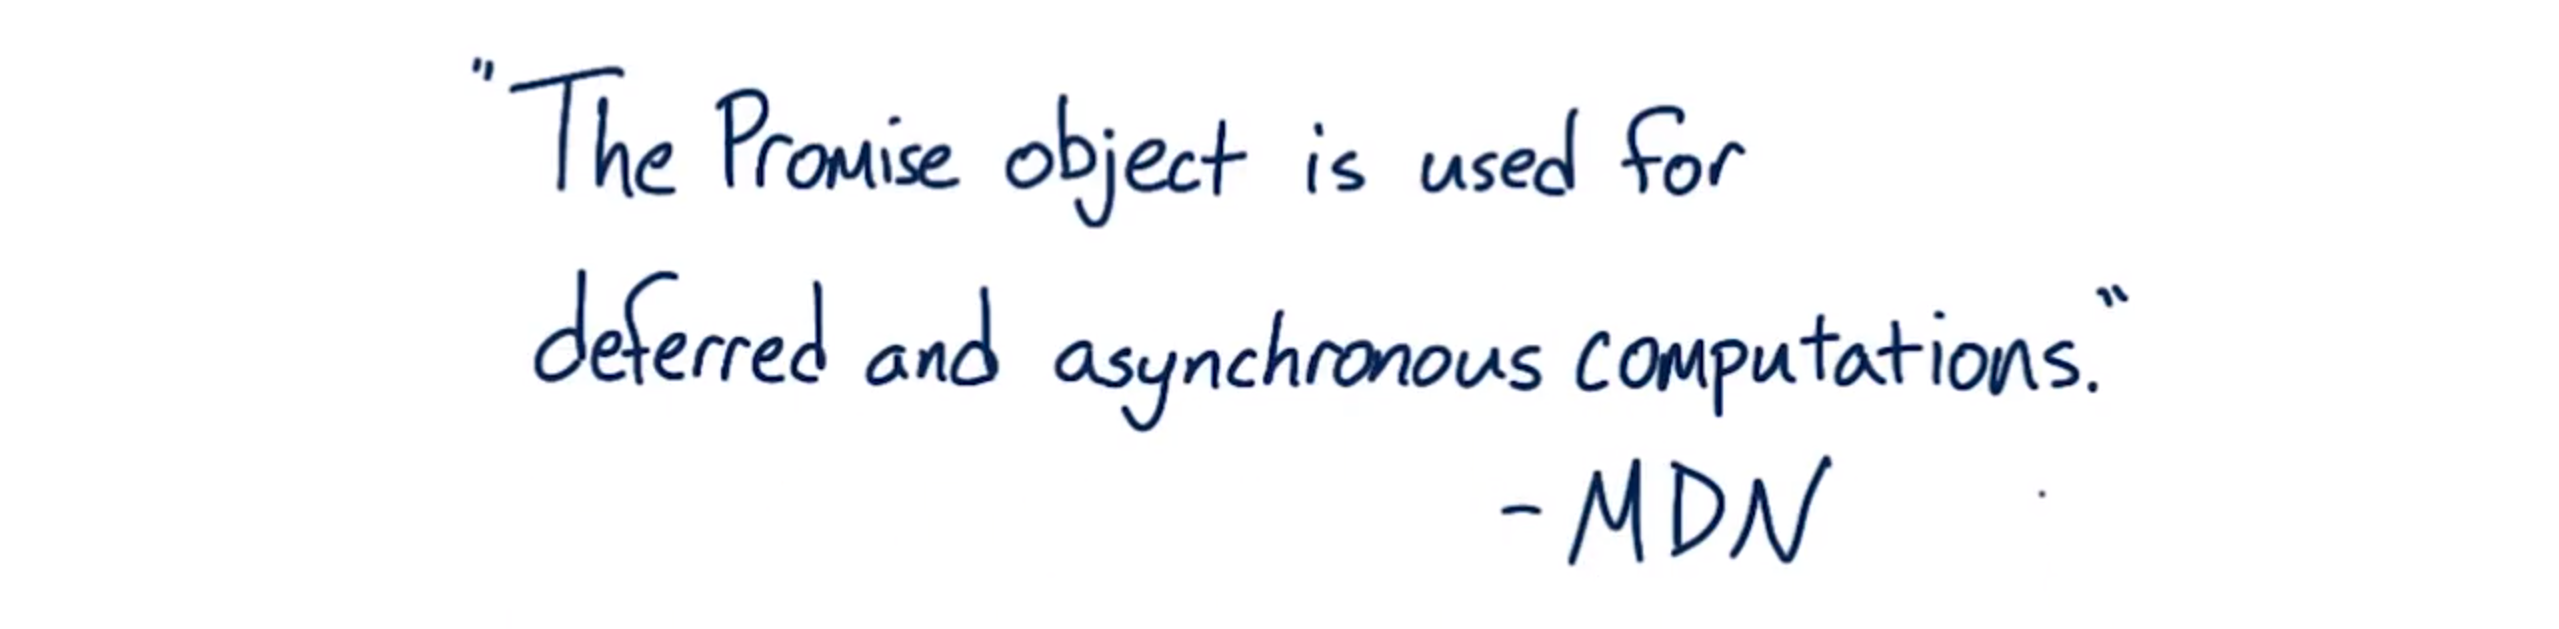 "The Promise object is used for
deferred and asynchronous computations."
- MDN